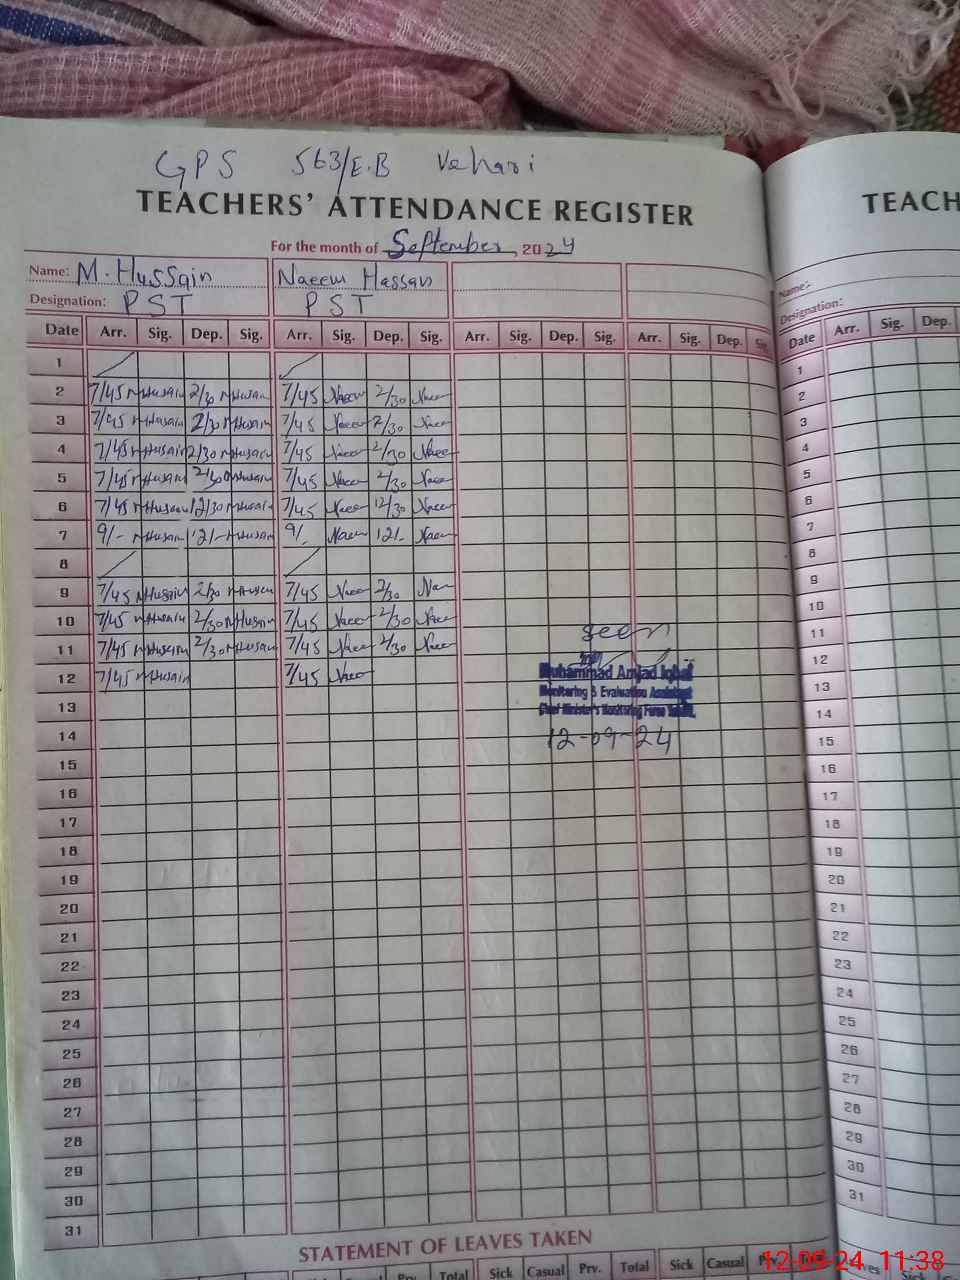 GPS 563/E.B Vehari
TEACHERS' ATTENDANCE REGISTER
For the month of September, 2024
Name: M. Hussain Naeem Hassan
Designation: PST PST
Date Arr. Sig. Dep. Sig. Arr. Sig. Dep. Sig. Arr. Sig. Dep. Sig. Arr. Sig. Dep. Sig.
1
2 7/45 M Husain 2/30 M Husain 7/45 Naeem 2/30 Naeem
3 7/45 M Husain 2/30 M Husain 7/45 Naeem 2/30 Naeem
4 7/45 M Husain 2/30 M Husain 7/45 Naeem 2/30 Naeem
5 7/45 M Husain 2/30 M Husain 7/45 Naeem 2/30 Naeem
6 7/45 M Husain 12/30 M Husain 7/45 Naeem 12/30 Naeem
7 9/- M Husain 12/- M Husain 9/- Naeem 12/- Naeem
8
9 7/45 M Husain 2/30 M Husain 7/45 Naeem 2/30 Naeem
10 7/45 M Husain 2/30 M Husain 7/45 Naeem 2/30 Naeem
11 7/45 M Husain 2/30 M Husain 7/45 Naeem 2/30 Naeem
12 7/45 M Husain 7/45 Naeem
13
14
15
16
17
18
19
20
21
22
23
24
25
26
27
28
29
30
31
seen
Muhammad Amjad Iqbal
Monitoring & Evaluation Assistant
Chief Minister's Monitoring Force
12-09-24
STATEMENT OF LEAVES TAKEN
Total Sick Casual Prv. Total Sick Casual
TEACH
Name:
Designation:
Date Arr. Sig. Dep.
1
2
3
4
5
6
7
8
9
10
11
12
13
14
15
16
17
18
19
20
21
22
23
24
25
26
27
28
29
30
31
12-09-24 11:38